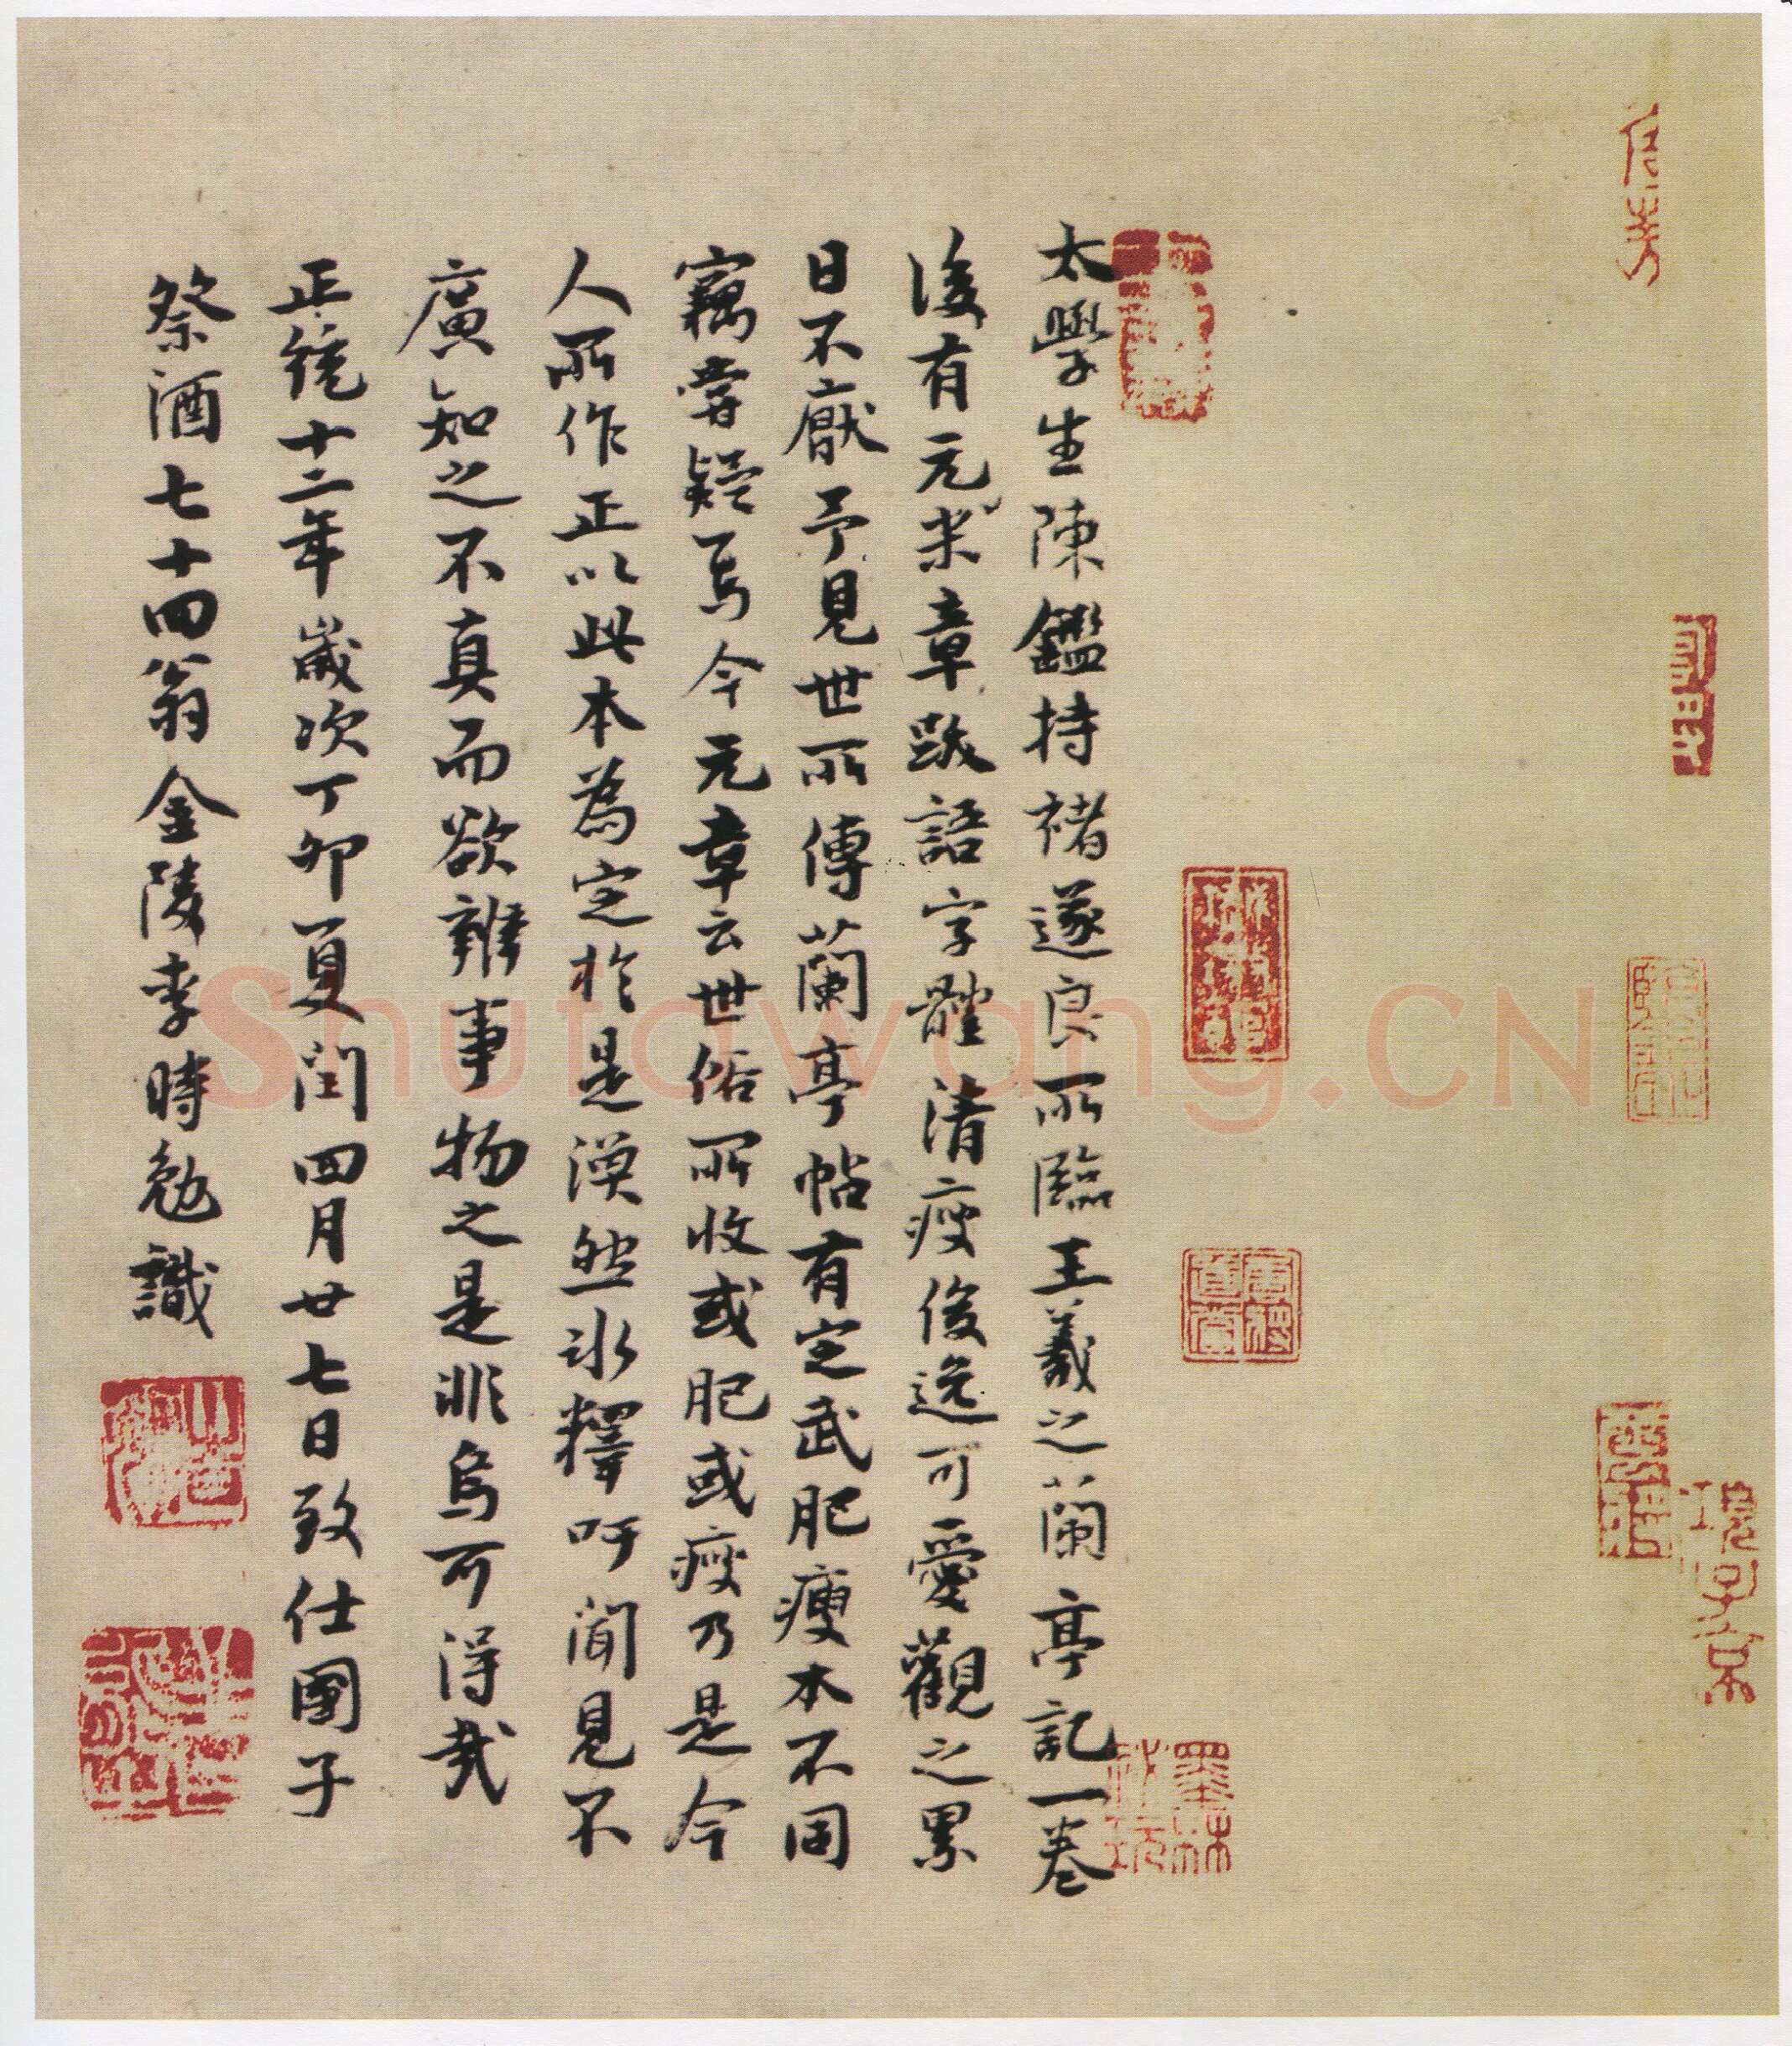 太學生陳鑑持褚遂良所臨王羲之蘭亭記一卷
後有元米章跋語字體清瘦俊逸可愛觀之累
日不厭予見世所傳蘭亭帖有定武肥瘦本不同
竊嘗疑焉今元章云世俗所收或肥或瘦乃是今
人所作正以此本為定於是渙然冰釋吁聞見不
廣知之不真而欲辨事物之是非烏可得哉
正統十二年歲次丁卯夏閏四月廿七日致仕國子
祭酒七十四翁金陵李時勉識
項子京
墨林
Shutawang.CN